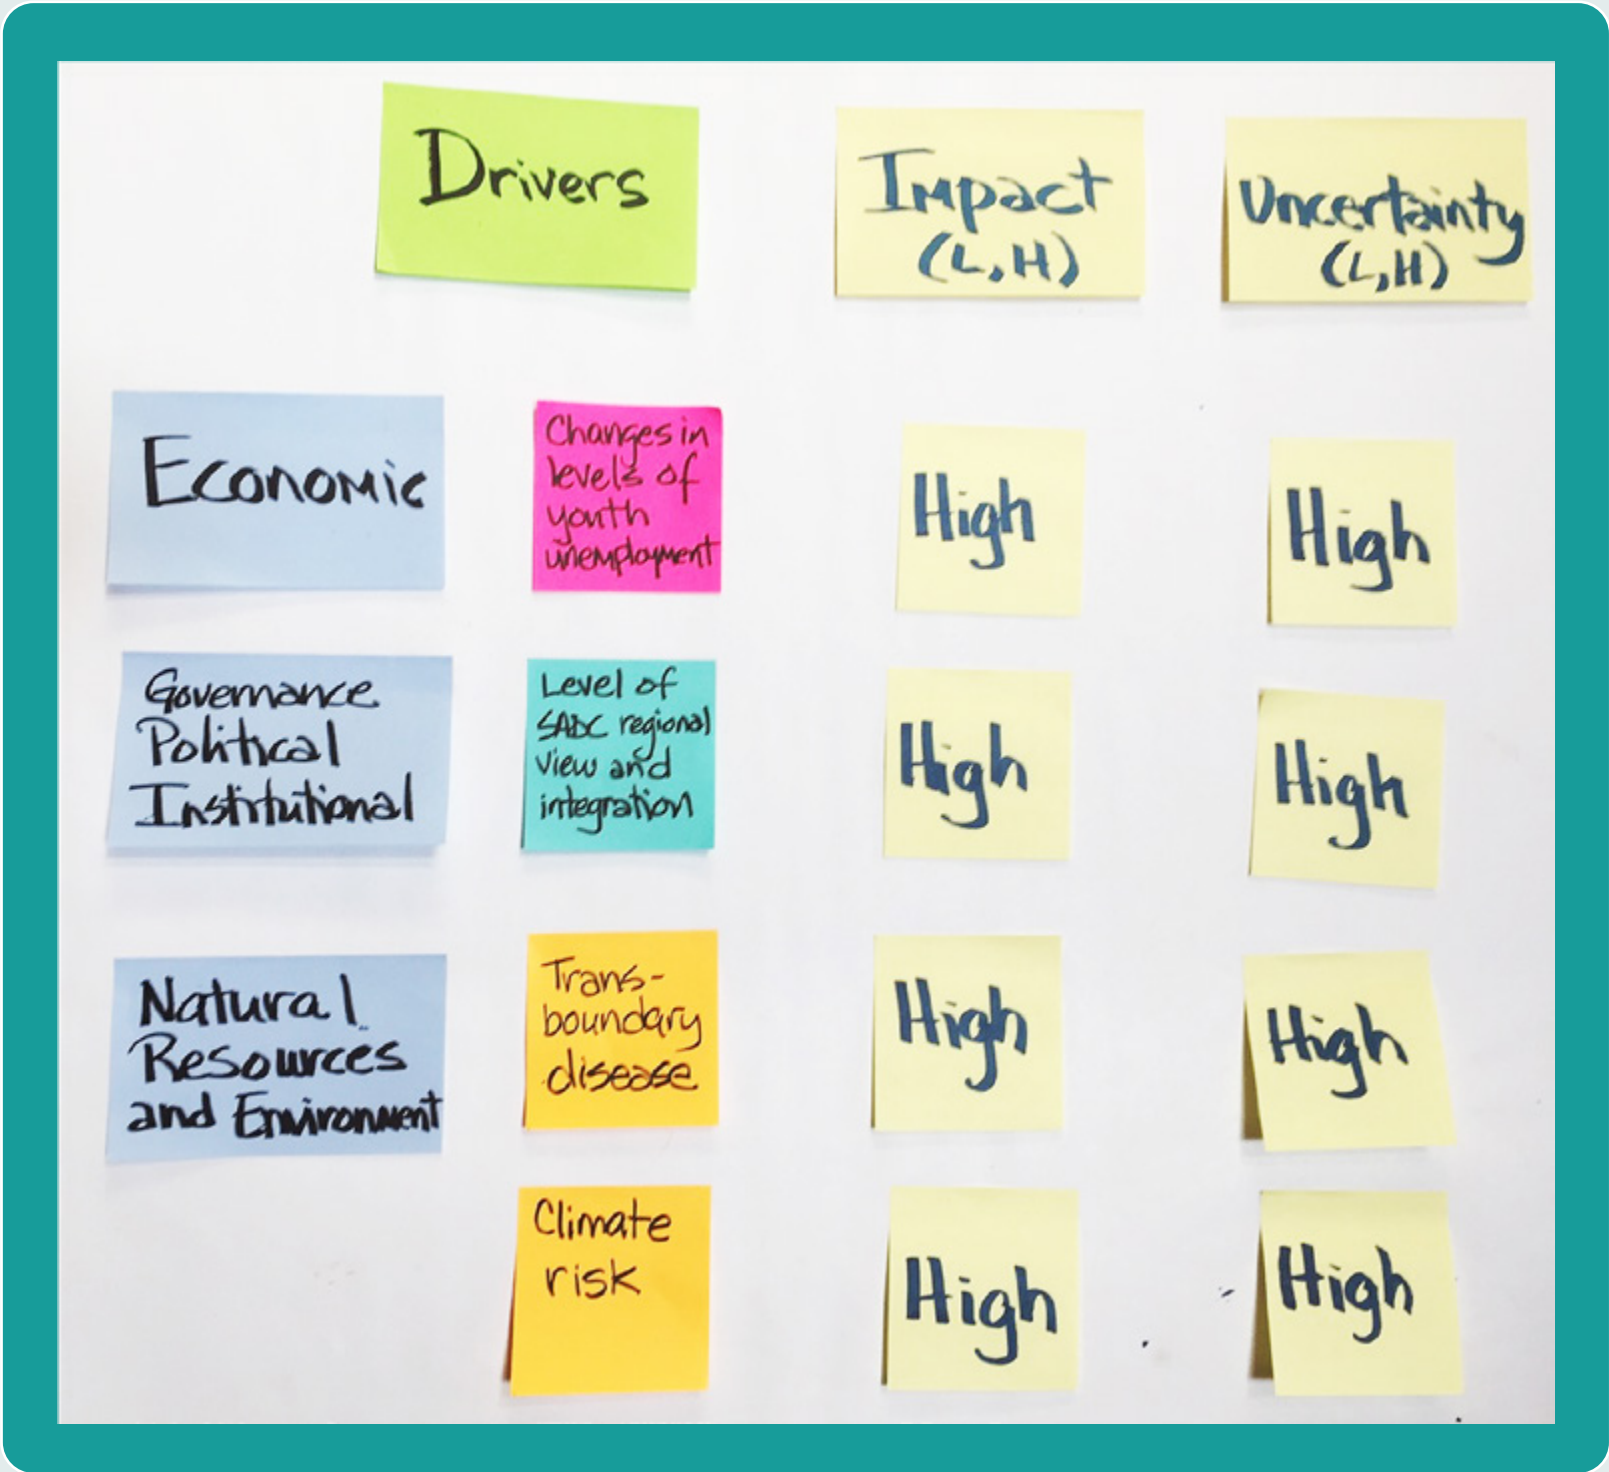 Drivers
Impact
(L,H)
Uncertainty
(L,H)
Economic
Changes in
levels of
youth
unemployment
High
High
Governance
Political
Institutional
Level of
SADC regional
view and
integration
High
High
Natural
Resources
and Environment
Trans-
boundary
disease
High
High
Climate
risk
High
High